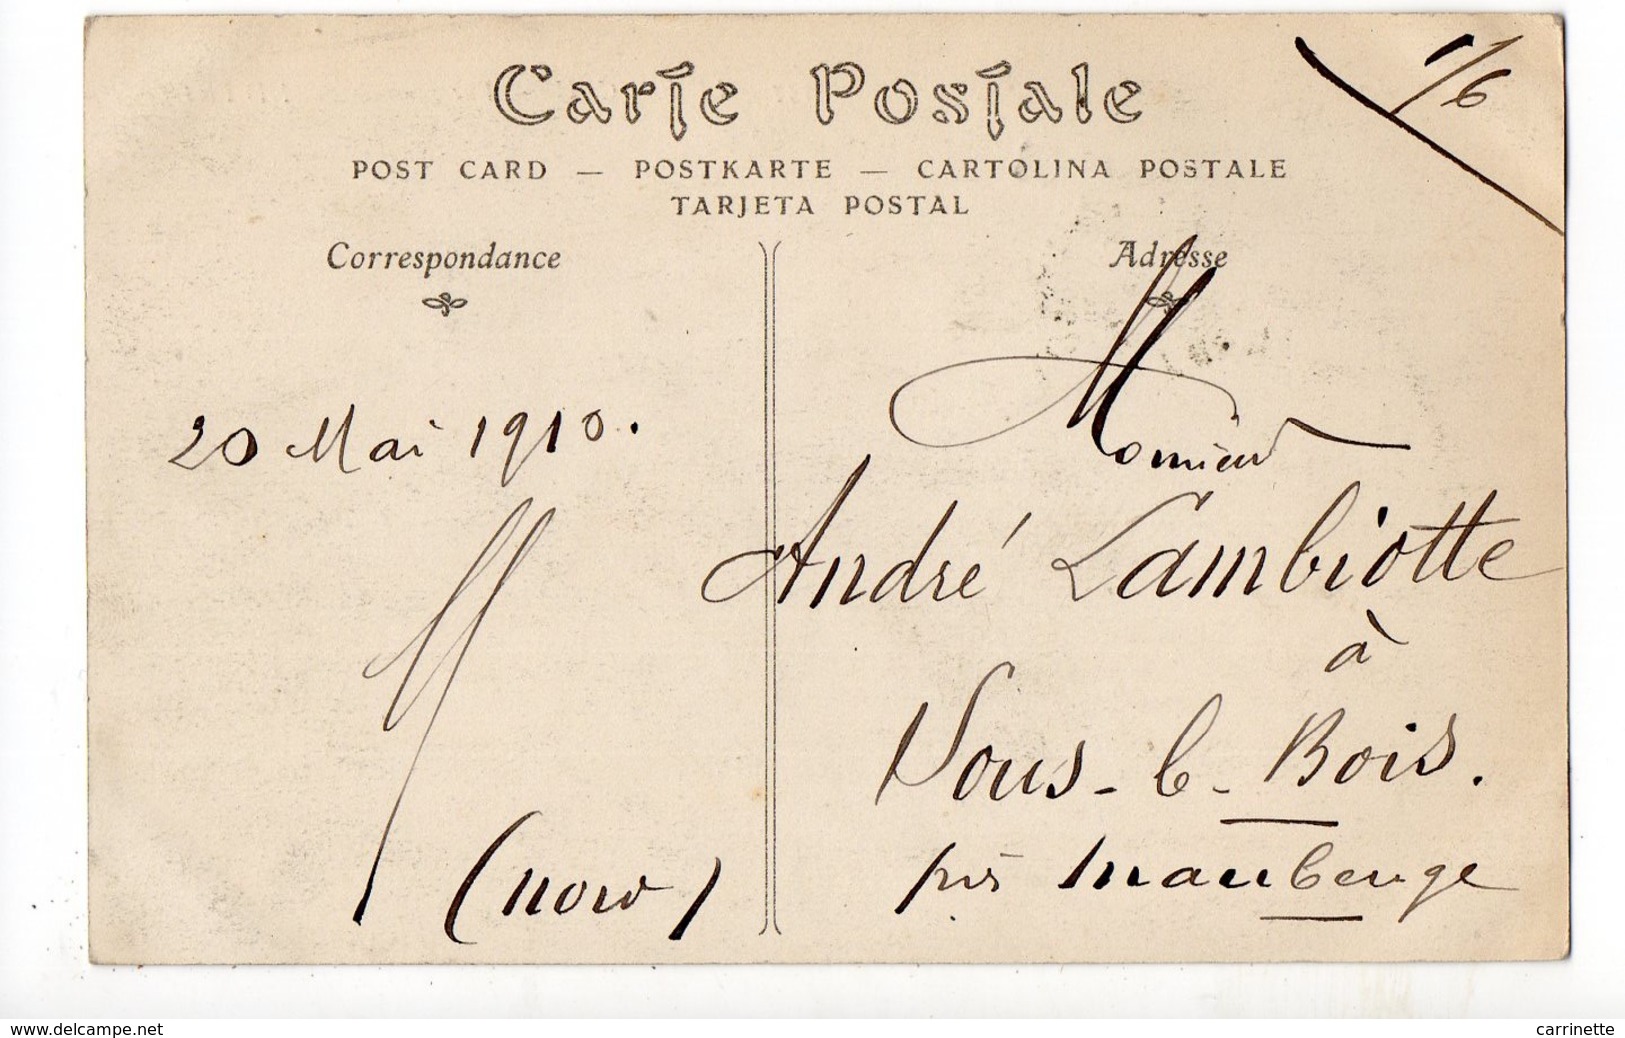 Carte Postale
1/6
POST CARD — POSTKARTE — CARTOLINA POSTALE
TARJETA POSTAL
Correspondance
Adresse
20 Mai 1910.
Monsieur
André Lambiotte
à
Sous-le-Bois.
près Maubeuge
www.delcampe.net
carrinette